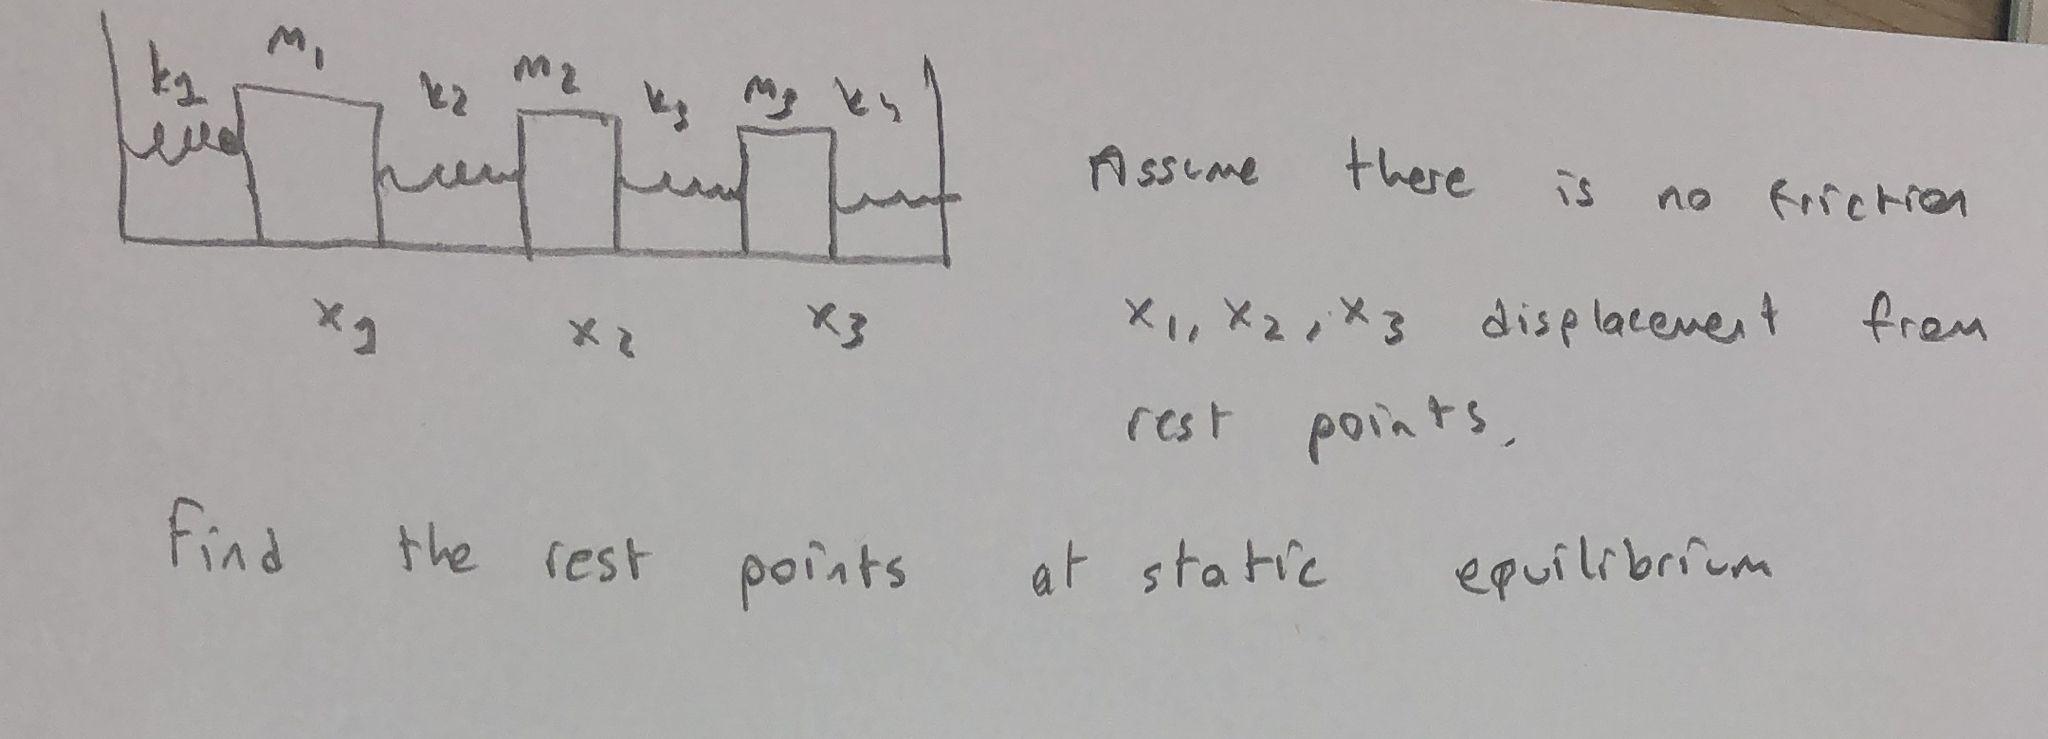 k1 M1 k2 M2 k3 M3 k4
x1 x2 x3
Assume there is no friction
x1, x2, x3 displacement from
rest points.
Find the rest points at static equilibrium